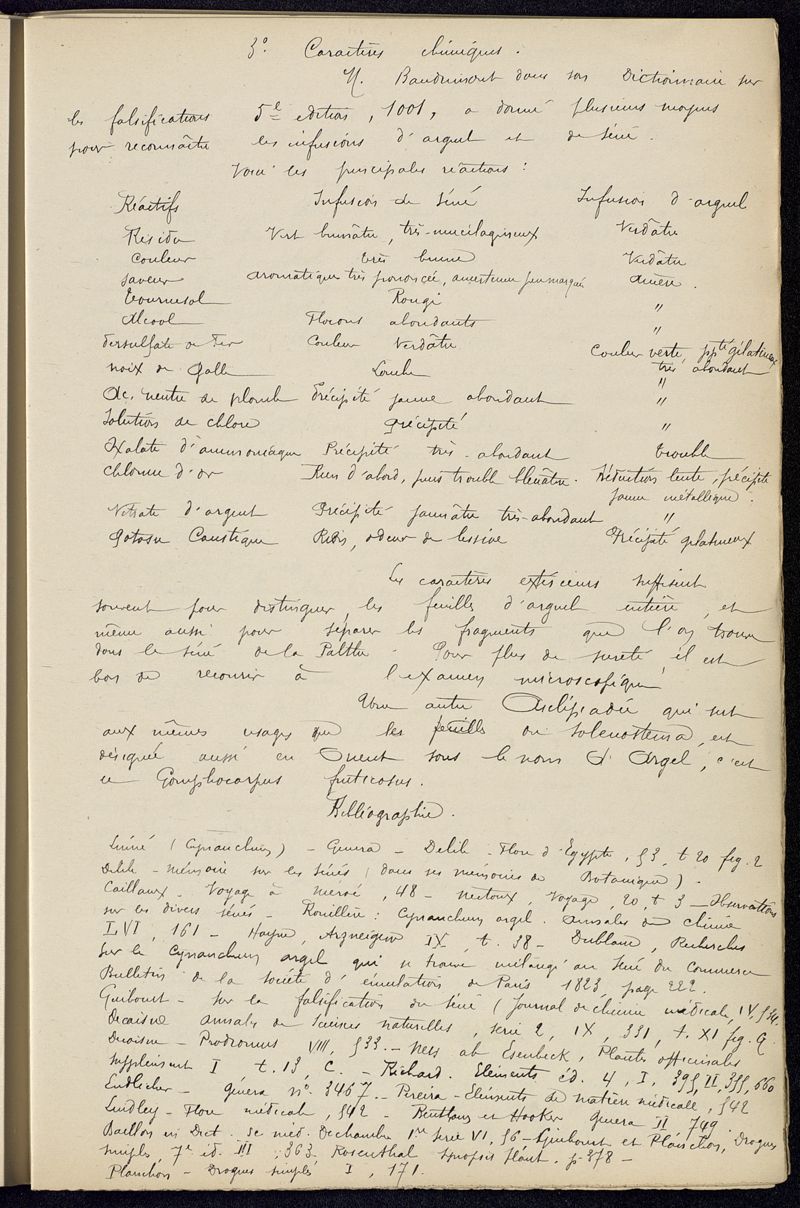 3° Caractères chimiques.
M. Baudrimont dans son Dictionnaire sur
les falsifications 5e edition, 1001, a donné plusieurs moyens
pour reconnaître les infusions d'arguel et de séné.
Voici les principales réactions :
Réactifs Infusion de séné Infusion d'arguel
Residu Vert brunâtre, très-mucilagineux Verdâtre
Couleur très brune Verdâtre
saveur aromatique très prononcée, amertume peu marquée Amère.
Tournesol Rougi "
Alcool Flocons abondants "
Persulfate de Fer Couleur Verdâtre Couleur verte, ppté gélatineux
noix de Galle Louche très abondant
Ac. neutre de plomb Précipité jaune abondant "
Solution de chlore Précipité "
Oxalate d'ammoniaque Précipité très-abondant trouble
Chlorure d'or Rien d'abord, puis trouble bleuâtre. Réduction lente, précipité
jaune métallique.
Nitrate d'argent Précipité jaunâtre très-abondant "
Potasse Caustique Rien, odeur de lessive Précipité gélatineux
Les caractères extérieurs suffisent
souvent pour distinguer les feuilles d'arguel entière, et
même aussi pour séparer les fragments que l'on trouve
dans le séné de la Palthe. Pour plus de sureté, il est
bon de recourir à l'examen microscopique
Une autre Asclépiadée qui sert
aux mêmes usages que les feuilles du solenostema, est
désignée aussi en Orient sous le nom d'Argel, c'est
le Gomphocarpus fruticosus.
Bibliographie.
Linné (Cynanchum) - Genera - Delile - Flore d'Egypte, 53, t 20 fig. 2
Delile - mémoire sur les sénés (dans ses mémoires de Botanique).
Caillaux - Voyage à meroé, 48 - nectoux, Voyage, 20, t 3 - Observations
sur les divers sénés - Rouillère : Cynanchum argel. Annales de chimie
LVI, 161 - Hayne, Arzneigew IX, t. 38 - Dublanc, Recherches
sur le Cynanchum argel qui se trouve mélangé au séné du Commerce
Bulletin de la société d'émulation de Paris 1823, page 222.
Guibourt - sur la falsification du séné (Journal de chimie médicale IV,
Decaisne annales de sciences naturelles, serie 2, IX, 331, t. XI fig. G.
Decaisne - Prodromus VIII, 533. - Nees ab Esenbeck, Plantes officinales
supplément I t. 13, C. - Richard. Elements éd. 4, I, 395, II, 355, 660
Endlicher - génera n°. 3467 - Pereira - Eléments de matière médicale, 542
Lindley - Flore médicale, 542 - Bentham et Hooker Genera II 749
Baillon in Dict. de méd. Dechambre 1re serie VI, 56 - Guibourt et Planchon, Drogues
simples, 7e éd. III, 363. Rosenthal synopsis plant. p 378 -
Planchon - Drogues simples I, 171.